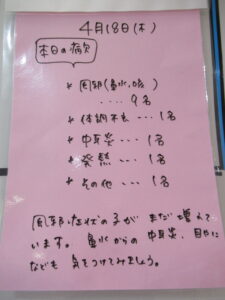 4月18日(木)
本日の病欠
* 風邪(鼻水,咳)
‥‥ 9名
* 体調不良 ‥‥ 1名
* 中耳炎 ‥‥ 1名
* 発熱 ‥‥ 1名
* その他 ‥‥ 1名
風邪症状の子がまだ増えて
います。鼻水からの中耳炎、目やに
なども気をつけてみましょう。